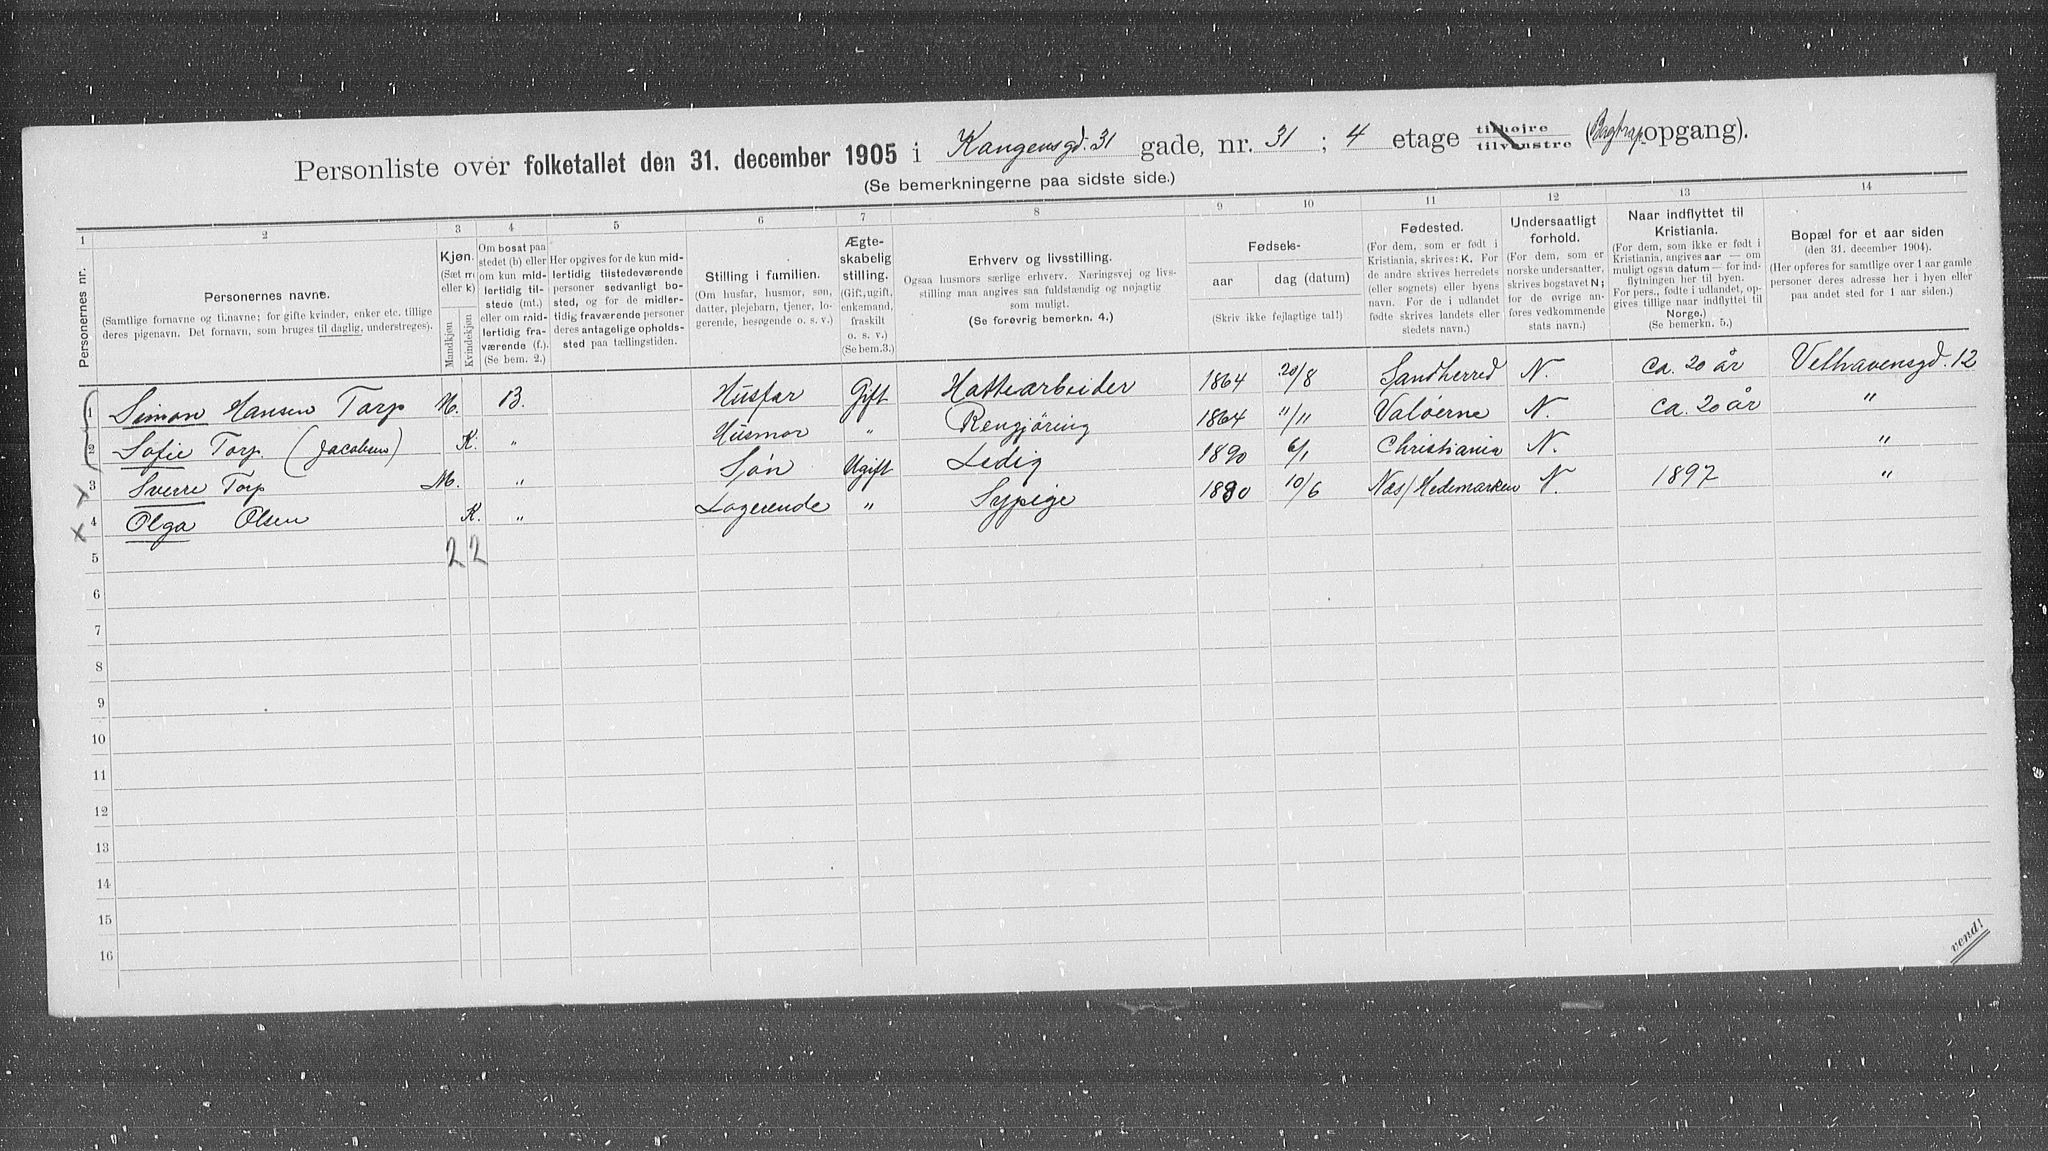 Personliste over folketallet den 31. december 1905 i Kongensgd. 31 gade, nr. 31 ; 4 etage tilhøire tilvenstre (Bagtrap. opgang).
(Se bemerkningerne paa sidste side.)
1 2 3 4 5 6 7 8 9 10 11 12 13 14
Personernes nr.
Personernes navne.
(Samtlige fornavne og tilnavne; for gifte kvinder, enker etc. tillige deres pigenavn. Det fornavn, som bruges til daglig, understreges).
Kjøn. (Sæt m eller k)
Mandkjøn Kvindekjøn
Om bosat paa stedet (b) eller om kun midlertidig tilstede (mt.) eller om midlertidig fraværende (f.) (Se bem. 2.)
Her opgives for de kun midlertidig tilstedeværende personer sedvanligt bosted, og for de midlertidig fraværende personer deres antagelige opholdssted paa tællingstiden.
Stilling i familien.
(Om husfar, husmor, søn, datter, plejebarn, tjener, logerende, besøgende o. s. v.)
Ægteskabelig stilling.
(Gift, ugift, enkemand, fraskilt o. s. v.) (Se bem.3.)
Erhverv og livsstilling.
Ogsaa husmors særlige erhverv. Næringsvej og livsstilling maa angives saa fuldstændig og nøjagtig som muligt.
(Se forøvrig bemerkn. 4.)
Fødsels-
aar dag (datum)
(Skriv ikke fejlagtige tal!)
Fødested.
(For dem, som er født i Kristiania, skrives: K. For de andre skrives herredets (eller sognets) eller byens navn. For de i udlandet fødte skrives landets eller stedets navn.)
Undersaatligt forhold.
(For dem, som er norske undersaatter, skrives bogstavet N; for de øvrige anføres vedkommende stats navn.)
Naar indflyttet til Kristiania.
(For dem, som ikke er født i Kristiania, angives aar — om muligt ogsaa datum — for indflytningen her til byen. For pers., fødte i udlandet, opgives tillige naar indflyttet til Norge.)
(Se bemerkn. 5.)
Bopæl for et aar siden
(den 31. december 1904).
(Her opføres for samtlige over 1 aar gamle personer deres adresse her i byen eller paa andet sted for 1 aar siden.)
1 Simon Hansen Torp M. B. Husfar Gift Hattearbeider 1864 20/8 Sandherred N. ca. 20 år Velhavensgd. 12
2 Sofie Torp. (Jacobsen) K. " Husmor " Rengjøring 1864 11/11 Valøerne N. ca. 20 år "
x 3 Sverre Torp M. " Søn Ugift Ledig 1890 6/1 Christiania N. "
x 4 Olga Olsen K. " Logerende " Sypige 1880 10/6 Næs/Hedemarken N. 1897 "
2 2
5
6
7
8
9
10
11
12
13
14
15
16
vend!